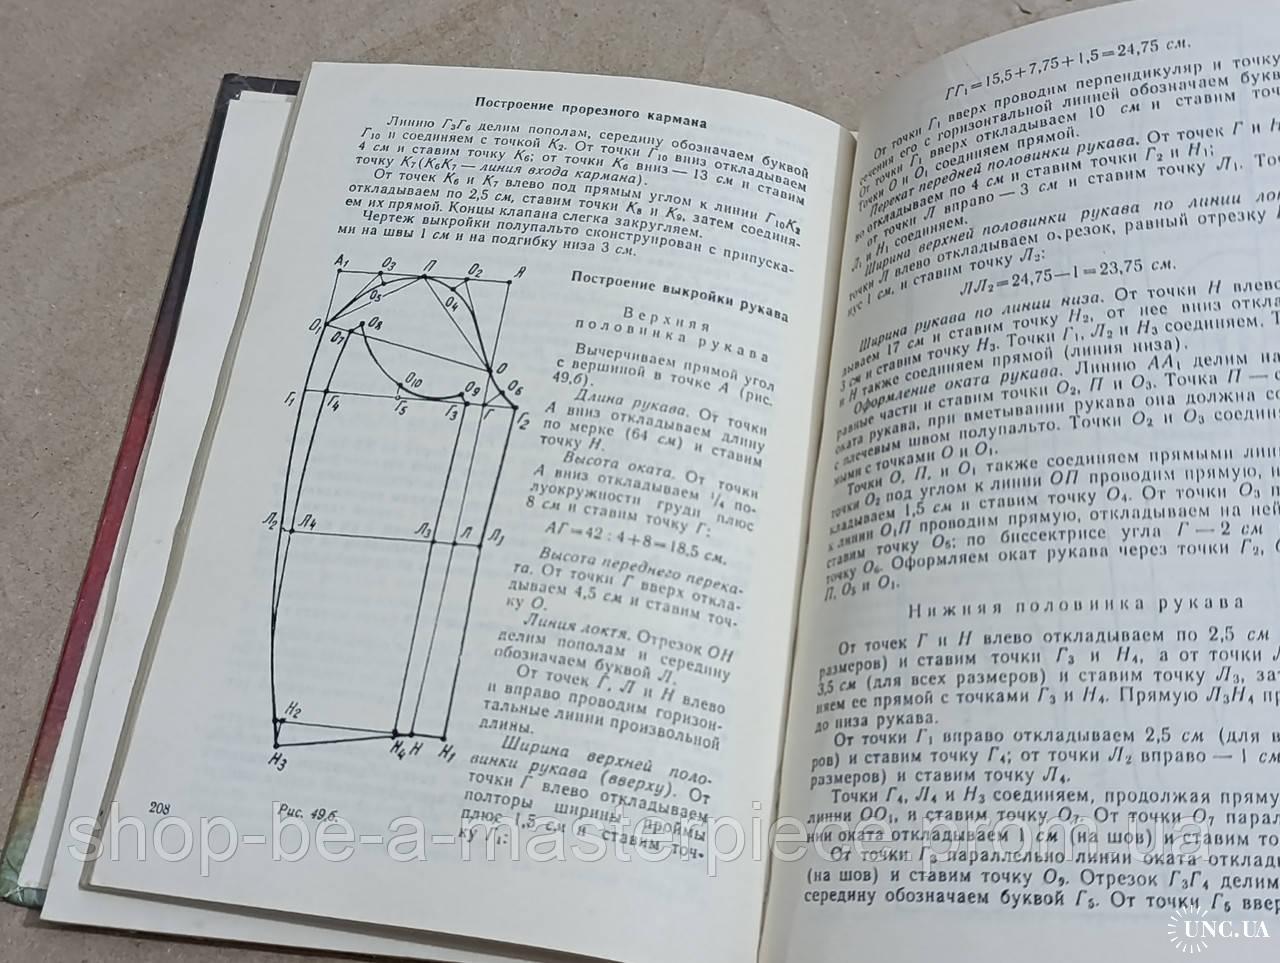 Построение прорезного кармана
Линию Г₃Г₆ делим пополам, середину обозначаем буквой
Г₁₀ и соединяем с точкой К₂. От точки Г₁₀ вниз откладываем
4 см и ставим точку К₆; от точки К₆ вниз — 13 см и ставим
точку К₇ (К₆К₇ — линия входа кармана).
От точек К₆ и К₇ влево под прямым углом к линии Г₁₀К₂
откладываем по 2,5 см, ставим точки К₈ и К₉, затем соединя-
ем их прямой. Концы клапана слегка закругляем.
Чертеж выкройки полупальто сконструирован с припуска-
ми на швы 1 см и на подгибку низа 3 см.
А₁ О₃ П О₂ А
О₅ О₄
О₁ О₇ О₈
О
О₁₀ О₉ О₆
Г₁ Г₄ Г₅ Г₃ Г Г₂
Л₂ Л₄ Л₃ Л Л₁
Н₂
Н₃ Н₄ Н Н₁
Рис. 49,б.
208
Построение выкройки рукава
Верхняя
половинка рукава
Вычерчиваем прямой угол
с вершиной в точке А (рис.
49,б).
Длина рукава. От точки
А вниз откладываем длину
по мерке (64 см) и ставим
точку Н.
Высота оката. От точки
А вниз откладываем ¼ по-
луокружности груди плюс
8 см и ставим точку Г:
АГ=42 : 4+8=18,5 см.
Высота переднего перека-
та. От точки Г вверх откла-
дываем 4,5 см и ставим точ-
ку О.
Линия локтя. Отрезок ОН
делим пополам и середину
обозначаем буквой Л.
От точек Г, Л и Н влево
и вправо проводим горизон-
тальные линии произвольной
длины.
Ширина верхней поло-
винки рукава (вверху). От
точки Г влево откладываем
полторы ширины проймы
плюс 1,5 см и ставим точ-
ку Г₁:
ГГ₁=15,5+7,75+1,5=24,75 см.
От точки Г₁ вверх проводим перпендикуляр и точку
сечения его с горизонтальной линией обозначаем
От точки Г₁ вверх откладываем 10 см и ставим
Точки О и О₁ соединяем прямой.
Перекат передней половинки рукава. От точек Г и Н
во откладываем по 4 см и ставим точки Г₂ и Н₁;
от точки Л вправо — 3 см и ставим точку Л₁.
Л₁ и Н₁ соединяем.
Ширина верхней половинки рукава по линии
точки Л влево откладываем отрезок, равный отрезку
нус 1 см, и ставим точку Л₂:
ЛЛ₂=24,75—1=23,75 см.
Ширина рукава по линии низа. От точки Н влево
дываем 17 см и ставим точку Н₂, от нее вниз
3 см и ставим точку Н₃. Точки Г₁, Л₂ и Н₃ соединяем.
и Н также соединяем прямой (линия низа).
Оформление оката рукава. Линию АА₁ делим на
равные части и ставим точки О₂, П и О₃. Точка П —
оката рукава, при вметывании рукава она должна
с плечевым швом полупальто. Точки О₂ и О₃
ными с точками О и О₁.
Точки О, П, и О₁ также соединяем прямыми
точки О₂ под углом к линии ОП проводим прямую,
кладываем 1,5 см и ставим точку О₄. От точки О₃
к линии О₁П проводим прямую, откладываем на ней
ставим точку О₅; по биссектрисе угла Г — 2 см
точку О₆. Оформляем окат рукава через точки Г₂,
П, О₅ и О₁.
Нижняя половинка рукава
От точек Г и Н влево откладываем по 2,5 см
размеров) и ставим точки Г₃ и Н₄, а от точки
3,5 см (для всех размеров) и ставим точку Л₃,
няем ее прямой с точками Г₃ и Н₄. Прямую Л₃Н₄
до низа рукава.
От точки Г₁ вправо откладываем 2,5 см (для
ров) и ставим точку Г₄; от точки Л₂ вправо — 1 см
размеров) и ставим точку Л₄.
Точки Г₄, Л₄ и Н₃ соединяем, продолжая
линии ОО₁, и ставим точку О₇. От точки О₇
нии оката откладываем 1 см (на шов) и ставим
От точки Г₃ параллельно линии оката
(на шов) и ставим точку О₉. Отрезок Г₃Г₄ делим
середину обозначаем буквой Г₅. От точки Г₅
shop-be-a-master-piece prom ua
UNC.UA